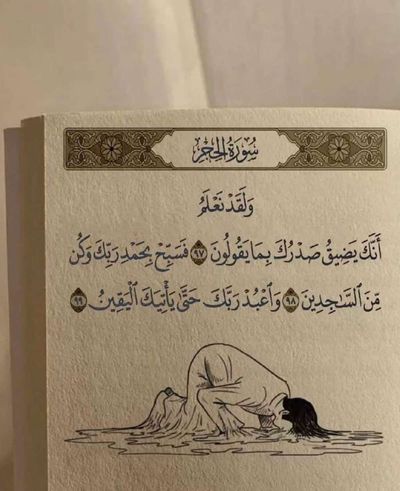 سُورَةُ الحِجْرِ
وَلَقَدْ نَعْلَمُ
أَنَّكَ يَضِيقُ صَدْرُكَ بِمَا يَقُولُونَ ٩٧ فَسَبِّحْ بِحَمْدِ رَبِّكَ وَكُن
مِّنَ السَّٰجِدِينَ ٩٨ وَاعْبُدْ رَبَّكَ حَتَّىٰ يَأْتِيَكَ الْيَقِينُ ٩٩